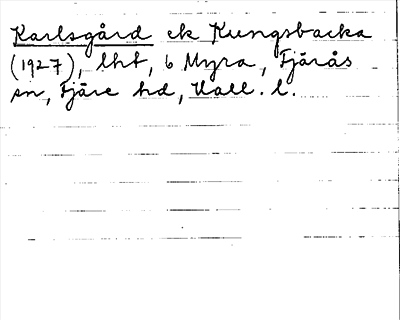 Karlsgård ek Kungsbacka
(1927), lht, 6 Myra, Fjärås
sn, Fjäre hd, Hall. l.